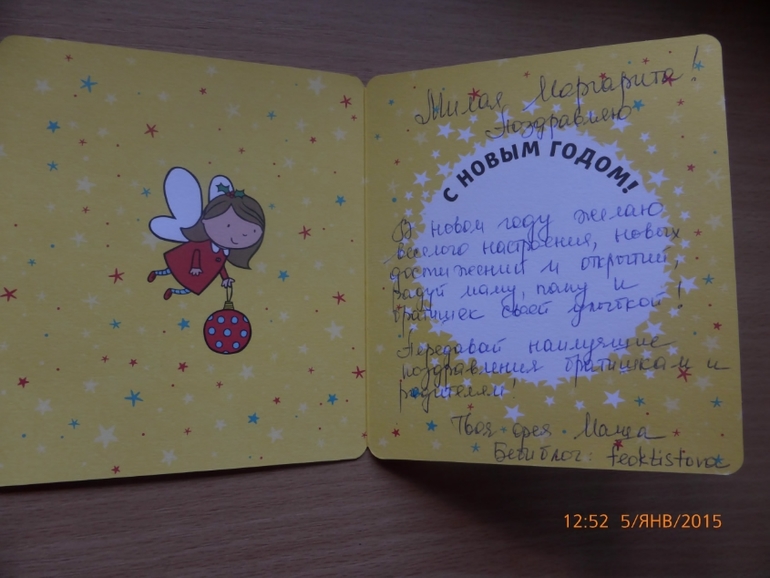 Милая Маргарита!
Поздравляю
С НОВЫМ ГОДОМ!
В новом году желаю
веселого настроения, новых
достижений и открытий,
радуй маму, папу и
братишек своей улыбкой!
Передавай наилучшие
поздравления братишкам и
родителям!
Твоя фея Маша
Бебиблог: feoktistova
12:52 5/ЯНВ/2015